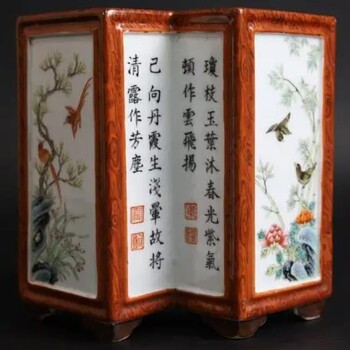 瓊枝玉葉沐春光紫氣
頓作雲飛揚
已向丹霞生淺暈故將
清露作芳塵